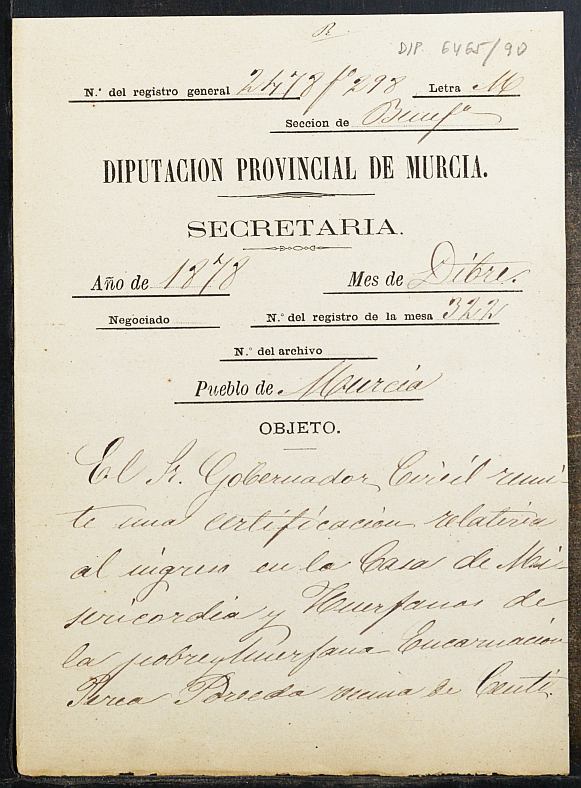 R.
DIP. 6465/90
N.º del registro general 2478 fº 298 Letra M
Seccion de Benefª
DIPUTACION PROVINCIAL DE MURCIA.
SECRETARIA.
Año de 1878 Mes de Dibre.
Negociado N.º del registro de la mesa 322
N.º del archivo
Pueblo de Murcia
OBJETO.
El Sr. Gobernador Civil remi-
te una certificacion relativa
al ingreso en la Casa de Mi-
sericordia y Huerfanos de
la pobre y huerfana Encarnacion
Perea Poveda